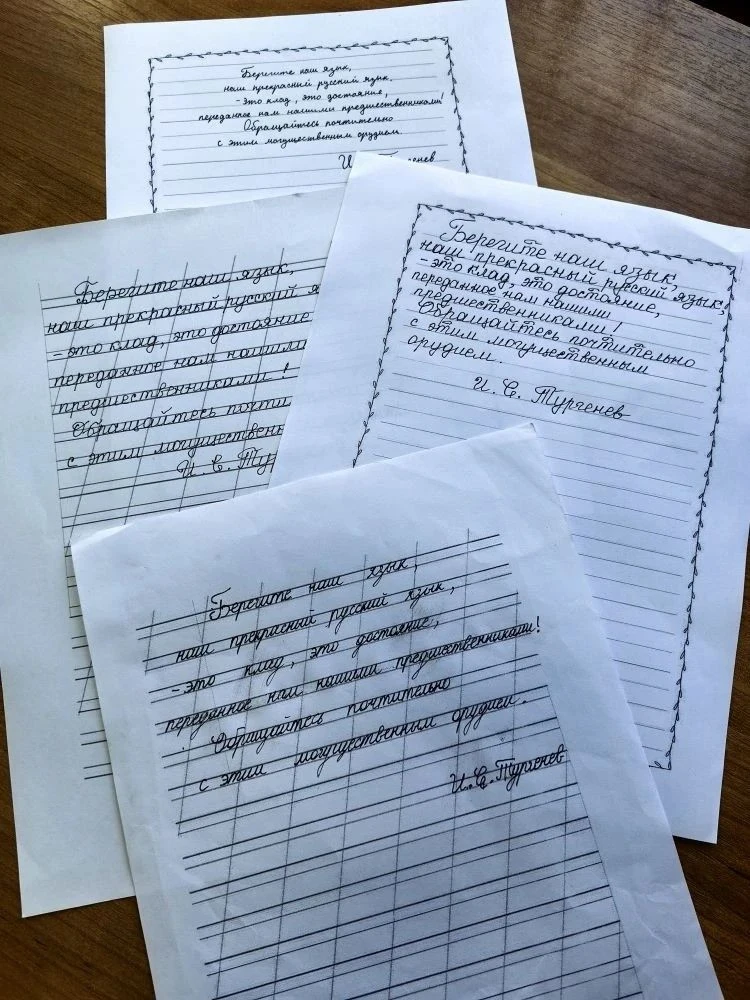 Берегите наш язык,
наш прекрасный русский язык.
- это клад, это достояние,
переданное нам нашими предшественниками!
Обращайтесь почтительно
с этим могущественным орудием.
Берегите наш язык,
наш прекрасный русский
- это клад, это достояние
переданное нам нашими
предшественниками!
Обращайтесь почти
с этим могуществен
И С. Тур
Берегите наш язык,
наш прекрасный русский язык,
- это клад, это достояние,
переданное нам нашими
предшественниками!
Обращайтесь почтительно
с этим могущественным
орудием.
И. С. Тургенев
Берегите наш язык,
наш прекрасный русский язык,
- это клад, это достояние,
переданное нам нашими предшественниками!
Обращайтесь почтительно
с этим могущественным орудием.
И. С. Тургенев